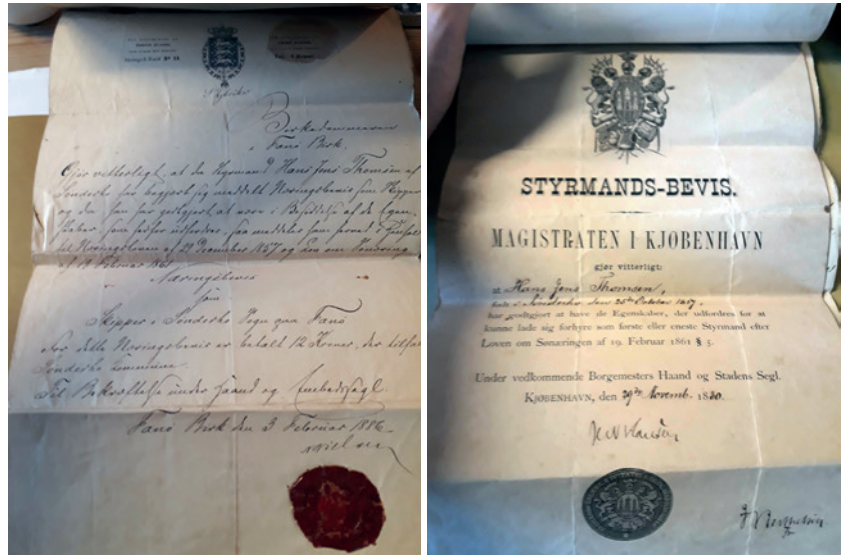 Birkedommeren
i Fanö Birk.
Gjør vitterligt, at da Styrmand Hans Jens Thomsen af
Sønderho har begjært sig meddelt Næringsbevis som Skipper
og da han har godtgjort at være i Besiddelse af de Egen-
skaber, som hertil udfordres, saa meddeles ham herved i Henhold
til Næringsloven af 29 December 1857 og Lov om
af 19 Februar 1861
Næringsbevis
som
Skipper i Sønderho Sogn paa Fanö
For dette Næringsbevis er betalt 12 Kroner, der
Sønderho Kommune.
Til Bekræftelse under Haand og Embedssegl.
Fanö Birk den 3 Februar 1886
STYRMANDS-BEVIS.
MAGISTRATEN I KJØBENHAVN
gjør vitterligt:
at Hans Jens Thomsen,
født i Sønderho den 25de Oktober 1857,
har godtgjort at have de Egenskaber, der udfordres for at
kunne lade sig forhyre som første eller eneste Styrmand efter
Loven om Sønæringen af 19. Februar 1861 § 5.
Under vedkommende Borgemesters Haand og Stadens Segl.
KJØBENHAVN, den 29de Novemb. 1880.